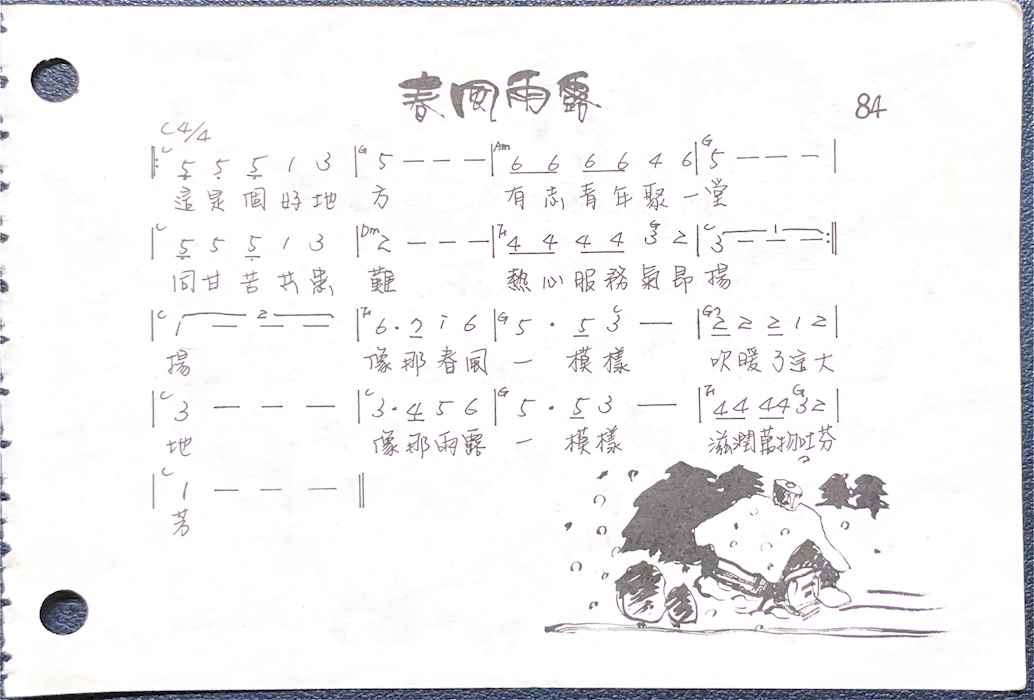 春風雨露
84
C 4/4
‖: C 5̣ 5̣ 5̣ 1 3 | G 5 — — — | Am 6 6 6 6 4 6 | G 5 — — — |
這是個好地 方 有志青年聚一堂
| C 5̣ 5 5̣ 1 3 | Dm 2 — — — | F 4 4 4 4 G 3 2 | C 3 — 1 — — :‖
同甘苦共患 難 熱心服務氣昂揚
| C 1 — 2 — — | F 6 · 7 i 6 | G 5 · 5 C 3 — | G7 2 2 2 1 2 |
揚 像那春風 一 模樣 吹暖了這大
| C 3 — — — | C 3 · 4 5 6 | G 5 · 5 3 — | F 4 4 4 4 G 3 2 |
地 像那雨露 一 模樣 滋潤萬物吐芬
| C 1 — — — ‖
芳